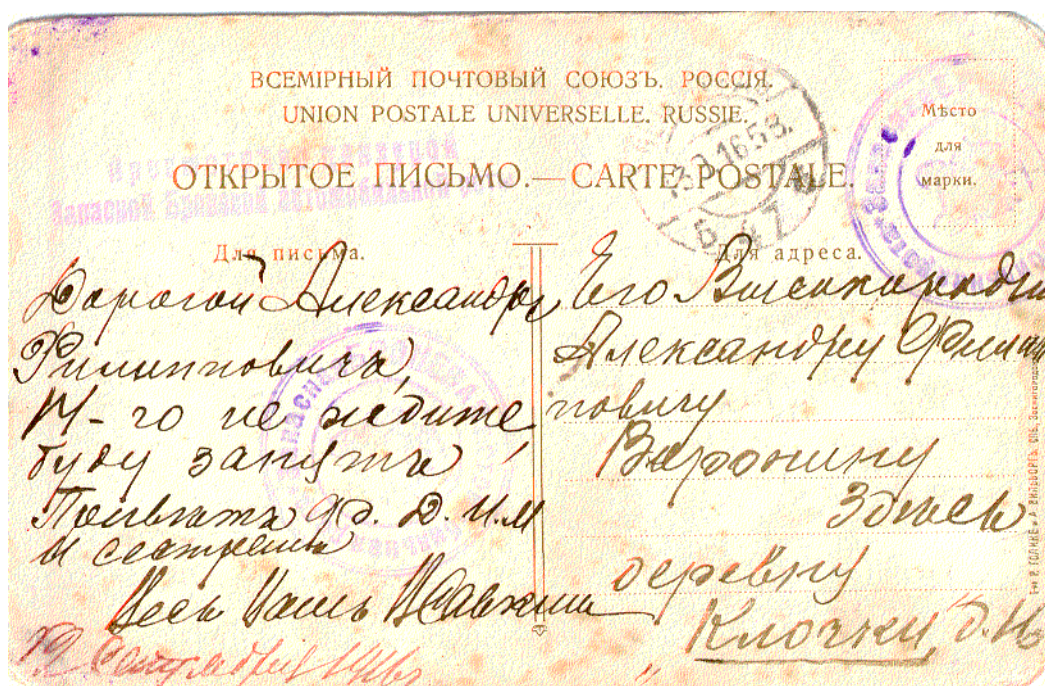 ВСЕМІРНЫЙ ПОЧТОВЫЙ СОЮЗЪ. РОССІЯ.
UNION POSTALE UNIVERSELLE. RUSSIE.
ОТКРЫТОЕ ПИСЬМО. — CARTE POSTALE.
Мѣсто
для
марки.
Запасной Броневой Автомобильной
13.9.16
Для письма.
Дорогой Александръ
Филипповичъ,
14-го не ждите
буду занятъ!
Привѣтъ Ф. Д. И. М
и сестрамъ
Весь Вашъ
12 Сентября 1916г
Для адреса.
Его Высокородію
Александру Филип
повичу
Воронину
Здѣсь
деревню
Клочки,